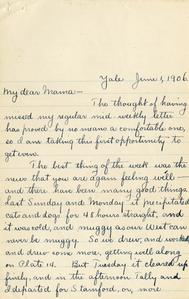 Yale June 1, 1906
My dear Mama—
The thought of having
missed my regular mid weekly letter
has proved by no means a comfortable one,
so I am taking this first opportunity to
get even.
The best thing of the week was the
news that you are again feeling well—
and there have been many good things.
Last Sunday and Monday it precipitated
cats and dogs for 48 hours straight, and
it was cold, and muggy as our West can
never be muggy. So we drew, and worked
and drew some more, getting well along
on Plate 14. But Tuesday it cleared up
finely, and in the afternoon Tally and
I departed for Stamford, or, more